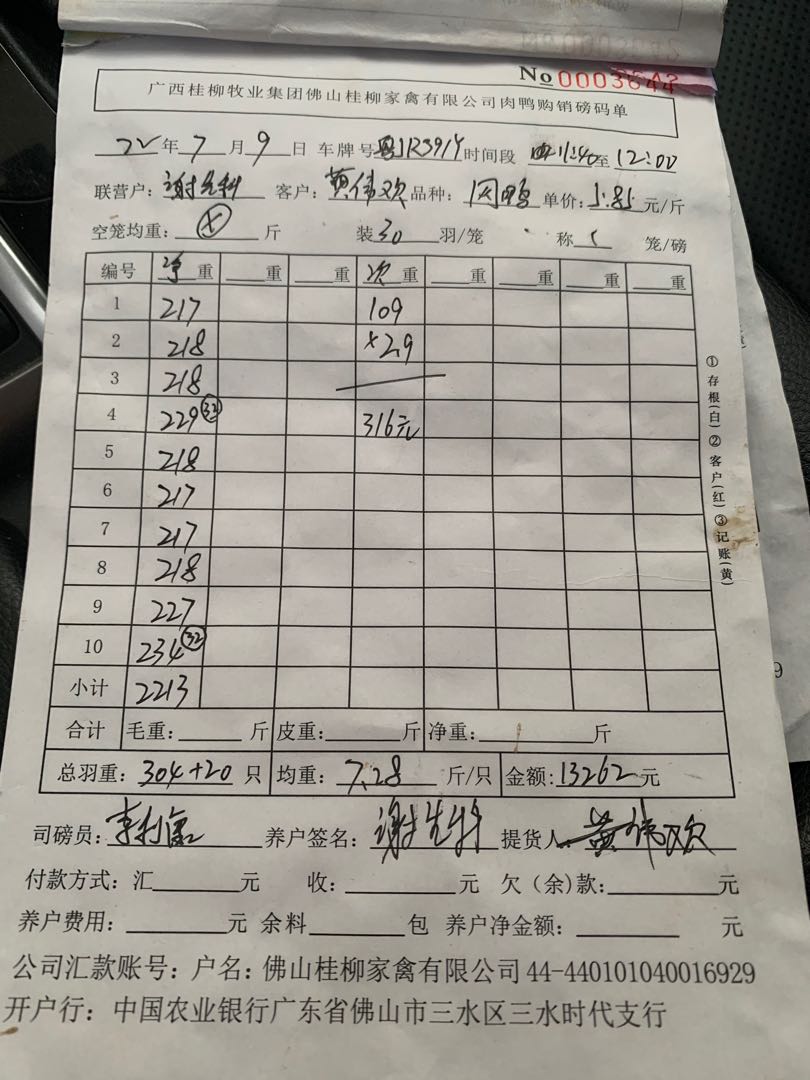 No 0003644
广西桂柳牧业集团佛山桂柳家禽有限公司肉鸭购销磅码单
22年7月9日 车牌号粤JR391Y时间段 11:40至12:00
联营户:谢先科 客户:黄伟欢 品种: 单价:5.85元/斤
空笼均重: 斤 装30羽/笼 称 笼/磅
编号 净重 重 重 次重 重 重 重 重
1 217 109
2 218 ×2.9
3 218
4 229 32 316元
5 218
6 217
7 217
8 218
9 227
10 234 32
小计 2213
合计 毛重: 斤 皮重: 斤 净重: 斤
总羽重:304+20只 均重:7.28斤/只 金额:13262元
司磅员: 养户签名:谢先科 提货人:黄伟欢
付款方式:汇 元 收: 元 欠(余)款: 元
养户费用: 元 余料 包 养户净金额: 元
公司汇款账号:户名:佛山桂柳家禽有限公司44-440101040016929
开户行:中国农业银行广东省佛山市三水区三水时代支行
①存根(白)②客户(红)③记账(黄)